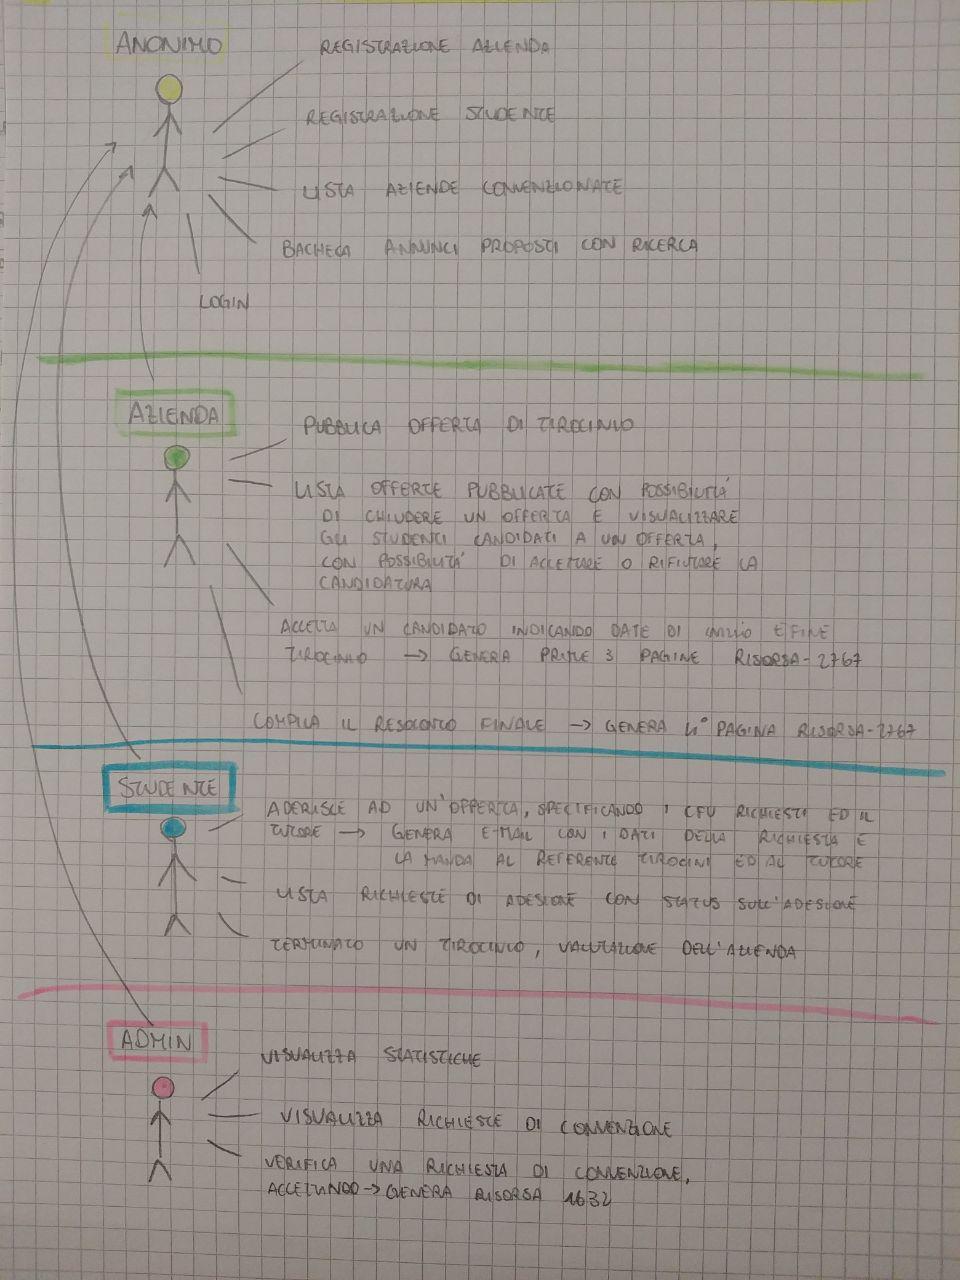 ANONIMO
REGISTRAZIONE AZIENDA
REGISTRAZIONE STUDENTE
LISTA AZIENDE CONVENZIONATE
BACHECA ANNUNCI PROPOSTI CON RICERCA
LOGIN
AZIENDA
PUBBLICA OFFERTA DI TIROCINIO
LISTA OFFERTE PUBBLICATE CON POSSIBILITÁ
DI CHIUDERE UN OFFERTA E VISUALIZZARE
GLI STUDENTI CANDIDATI A UN OFFERTA,
CON POSSIBILITÁ DI ACCETTARE O RIFIUTARE LA
CANDIDATURA
ACCETTA UN CANDIDATO INDICANDO DATE DI INIZIO E FINE
TIROCINIO → GENERA PRIME 3 PAGINE RISORSA-2767
COMPILA IL RESOCONTO FINALE → GENERA 4° PAGINA RISORSA-2767
STUDENTE
ADERISCE AD UN'OFFERTA, SPECIFICANDO I CFU RICHIESTI ED IL
TUTORE → GENERA E-MAIL CON I DATI DELLA RICHIESTA E
LA MANDA AL REFERENTE TIROCINI ED AL TUTORE
LISTA RICHIESTE DI ADESIONE CON STATUS SULL'ADESIONE
TERMINATO UN TIROCINIO, VALUTAZIONE DELL'AZIENDA
ADMIN
VISUALIZZA STATISTICHE
VISUALIZZA RICHIESTE DI CONVENZIONE
VERIFICA UNA RICHIESTA DI CONVENZIONE,
ACCETTANDO → GENERA RISORSA 1632